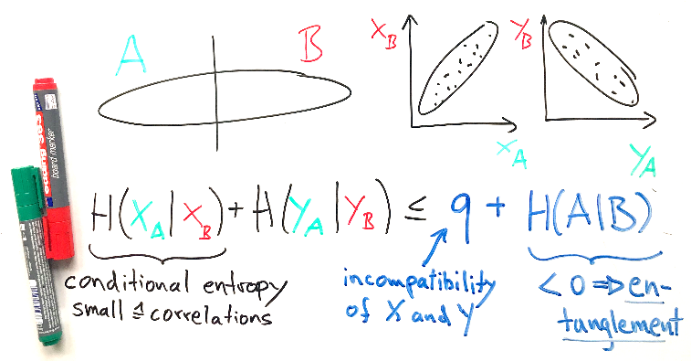 A B
X_B
X_A
Y_B
Y_A
edding
board marker
H(X_A|X_B)+H(Y_A|Y_B) ≤ q + H(A|B)
conditional entropy
small ≙ correlations
incompatibility
of X and Y
<0 ⇒ en-
tanglement